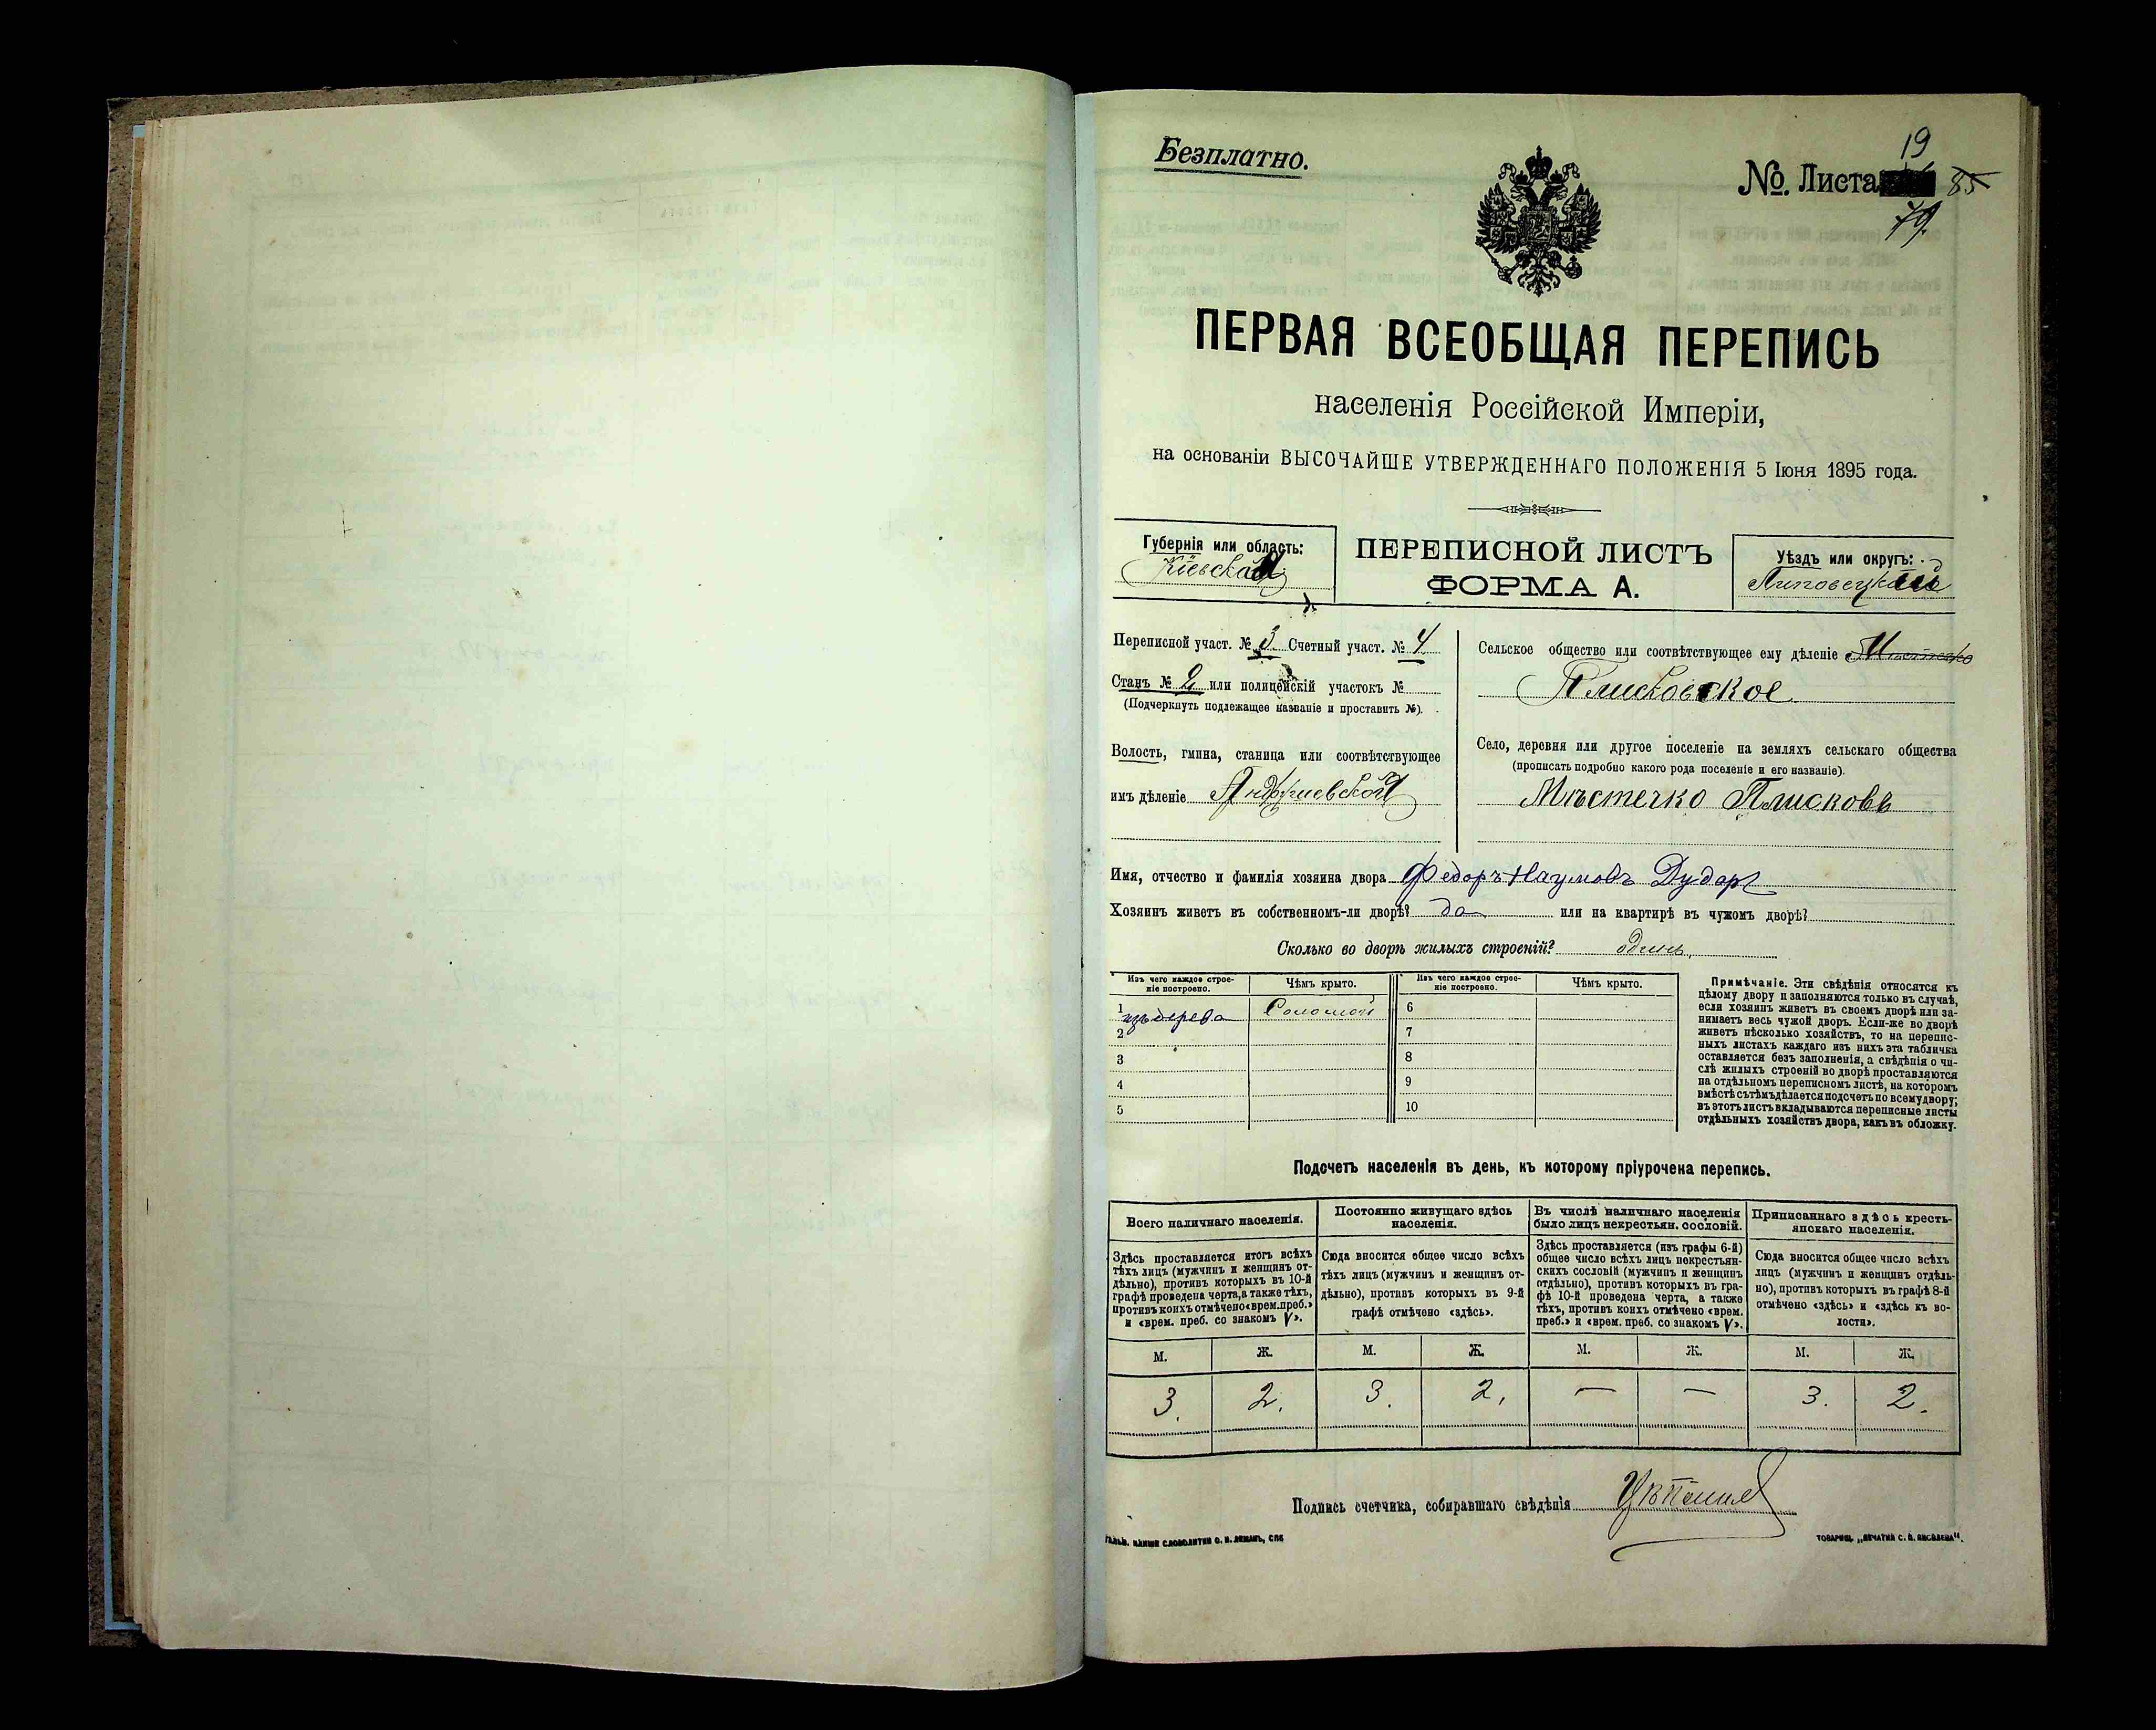 Безплатно.
19
№. Листа 85
79.
ПЕРВАЯ ВСЕОБЩАЯ ПЕРЕПИСЬ
населенія Россійской Имперіи,
на основаніи ВЫСОЧАЙШЕ УТВЕРЖДЕННАГО ПОЛОЖЕНІЯ 5 Іюня 1895 года.
Губернія или область:
Кіевская
ПЕРЕПИСНОЙ ЛИСТЪ
ФОРМА А.
Уѣздъ или округъ:
Липовецкій
Переписной участ. № 3. Счетный участ. № 4
Станъ № 2 или полицейскій участокъ №
(Подчеркнуть подлежащее названіе и проставить №).
Волость, гмина, станица или соотвѣтствующее
имъ дѣленіе
Сельское общество или соотвѣтствующее ему дѣленіе Мѣстечко
Плисковское
Село, деревня или другое поселеніе на земляхъ сельскаго общества
(прописать подробно какого рода поселеніе и его названіе).
Мѣстечко Плисковъ
Имя, отчество и фамилія хозяина двора Федоръ Наумовъ Дударь
Хозяинъ живетъ въ собственномъ-ли дворѣ? да или на квартирѣ въ чужомъ дворѣ?
Сколько во дворѣ жилыхъ строеній? одинъ
Изъ чего каждое строе-
ніе построено.
Чѣмъ крыто.
Изъ чего каждое строе-
ніе построено.
Чѣмъ крыто.
1 изъ дерева Соломой 6
2 7
3 8
4 9
5 10
Примѣчаніе. Эти свѣдѣнія относятся къ
цѣлому двору и заполняются только въ случаѣ,
если хозяинъ живетъ въ своемъ дворѣ или за-
нимаетъ весь чужой дворъ. Если-же во дворѣ
живетъ нѣсколько хозяйствъ, то на перепис-
ныхъ листахъ каждаго изъ нихъ эта табличка
оставляется безъ заполненія, а свѣдѣнія о чи-
слѣ жилыхъ строеній во дворѣ проставляются
на отдѣльномъ переписномъ листѣ, на которомъ
вмѣстѣ съ тѣмъ дѣлается подсчетъ по всему двору;
въ этотъ листъ вкладываются переписные листы
отдѣльныхъ хозяйствъ двора, какъ въ обложку.
Подсчетъ населенія въ день, къ которому пріурочена перепись.
Всего наличнаго населенія.
Здѣсь проставляется итогъ всѣхъ
тѣхъ лицъ (мужчинъ и женщинъ от-
дѣльно), противъ которыхъ въ 10-й
графѣ проведена черта, а также тѣхъ,
противъ коихъ отмѣчено «врем. преб.»
и «врем. преб. со знакомъ V».
Постоянно живущаго здѣсь
населенія.
Сюда вносится общее число всѣхъ
тѣхъ лицъ (мужчинъ и женщинъ от-
дѣльно), противъ которыхъ въ 9-й
графѣ отмѣчено «здѣсь».
Въ числѣ наличнаго населенія
было лицъ некрестьян. сословій.
Здѣсь проставляется (изъ графы 6-й)
общее число всѣхъ лицъ некрестьян-
скихъ сословій (мужчинъ и женщинъ
отдѣльно), противъ которыхъ въ гра-
фѣ 10-й проведена черта, а также
тѣхъ, противъ коихъ отмѣчено «врем.
преб.» и «врем. преб. со знакомъ V».
Приписаннаго здѣсь кресть-
янскаго населенія.
Сюда вносится общее число всѣхъ
лицъ (мужчинъ и женщинъ отдѣль-
но), противъ которыхъ въ графѣ 8-й
отмѣчено «здѣсь» и «здѣсь къ во-
лости».
М. Ж. М. Ж. М. Ж. М. Ж.
3. 2. 3. 2. — — 3. 2.
Подпись счетчика, собиравшаго свѣдѣнія
СЛОВОЛИТНИ О. И. ЛЕМАНЪ, СПБ
ТОВАРИЩ. „ПЕЧАТНЯ С. П. ЯКОВЛЕВА“.